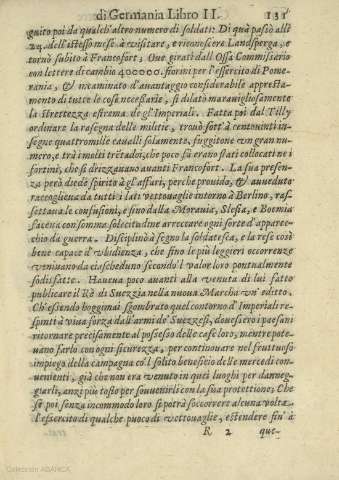 di Germania Libro II. 131
guito poi da qualch'altro numero di soldati: Di quà passò alli
24. dell'istesso mese à visitare, e riconoscere Landsperga, e
tornò subito à Francofort. Oue girati dall'Ossa Commissario
con lettere di cambio 400000. fiorini per l'essercito di Pome-
rania, & incaminato d'auantaggio considerabile appresta-
mento di tutte le cose necessarie, si dilatò marauigliosamente
la strettezza estrema de gl'Imperiali. Fatta poi dal Tilly
ordinare la rasegna delle militie, trouò sott'à centouinti in-
segne quattromille caualli solamente, suggitone vn gran nu-
mero, e trà i molti trè tadi, che poco fù erano stati collocati ne i
fortini, che si drizzauano auanti Francofort. La sua presen-
za però diede spirito à gl'affari, perche prouido, & aueduto
raccoglieua da tutti i lati vettouaglie intorno à Berlino, ras-
settaua le confusioni, e fino dalla Morauia, Slesia, e Boemia
facea con somma solecitudine arreccare ogni sorte d'apparec-
chio da guerra. Disciplinò à segno la soldatesca, e la rese così
bene capace d'vbidienza, che fino le più leggieri occorrenze
veniuano da ciascheduno secondo'l valor loro pontualmente
sodisfatte. Haueua poco auanti alla venuta di lui fatto
publicare il Rè di Suezzia nella nuoua Marcha vn'editto.
Ch'essendo hoggimai sgombrato quel contorno d'Imperiali re-
spinti à viua forza dall'armi de' Suezzesi, douessero i paesani
ritornare precisamente al possesso delle case loro, mentre pote-
uano farlo con ogni sicurezza, per continouare nel fruttuoso
impiego della campagna co'l solito beneficio delle mercedi con-
uenienti, già che non era venuto in quei luoghi per danneg-
giarli, anzi più tosto per souuenirli con la sua protettione; Che
se poi senza incommodo loro si potrà soccorrere alcuna volta
l'essercito di qualche puoco di vettouaglie, estendere fin'à
R 2 que-
Colección ABANCA